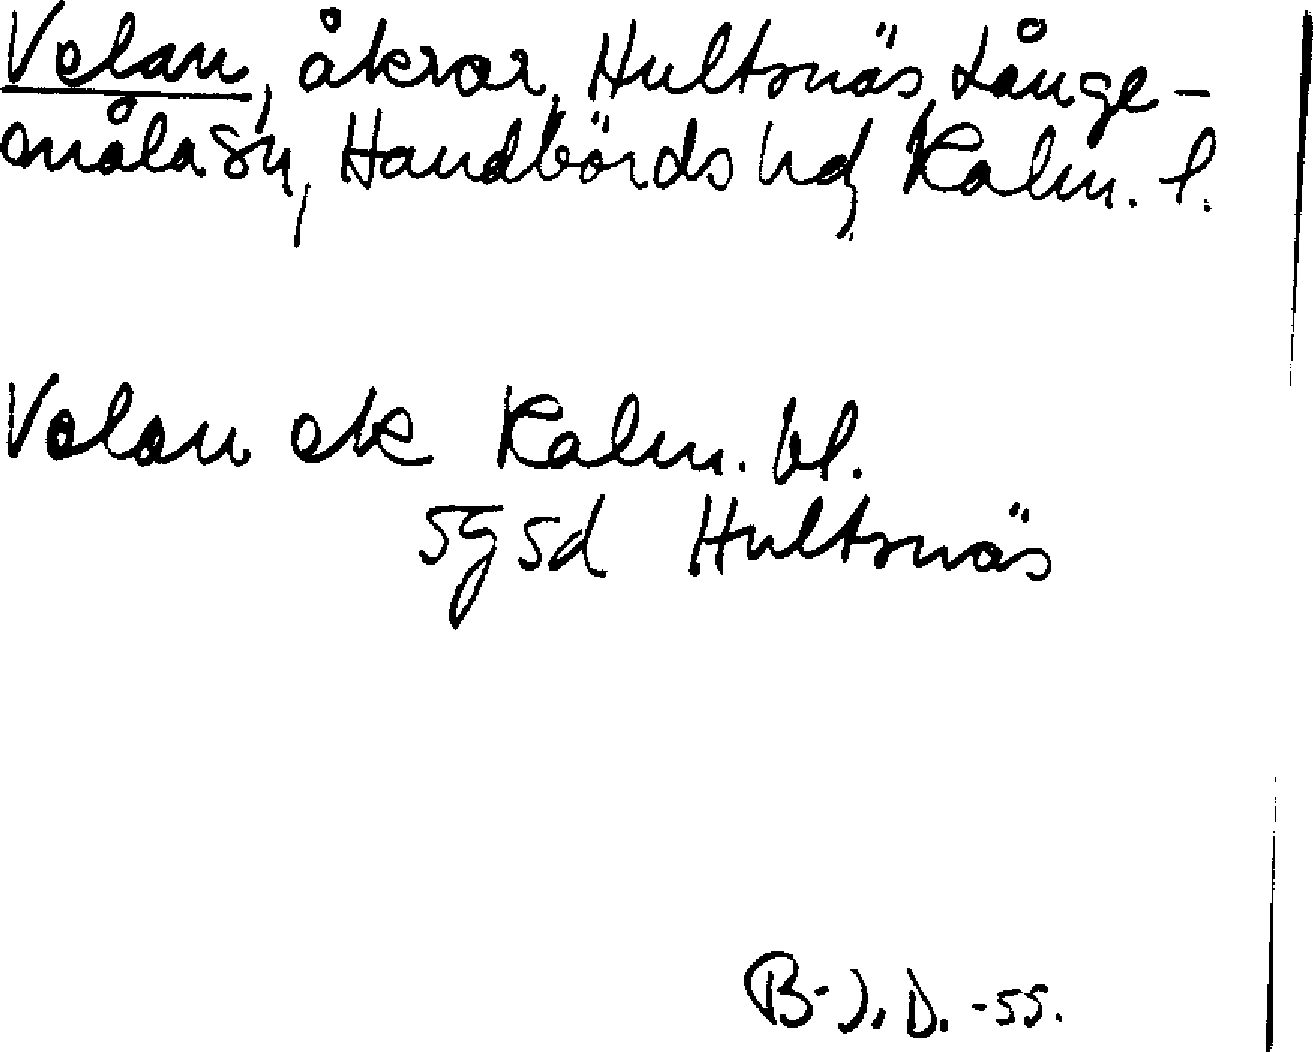 Velan, åkrar, Hultsnäs, Långe-
måla sn, Handbörds hd, Kalm. l.
Velan ek Kalm. bl.
sgsd Hultsnäs
B-J. D. -55.